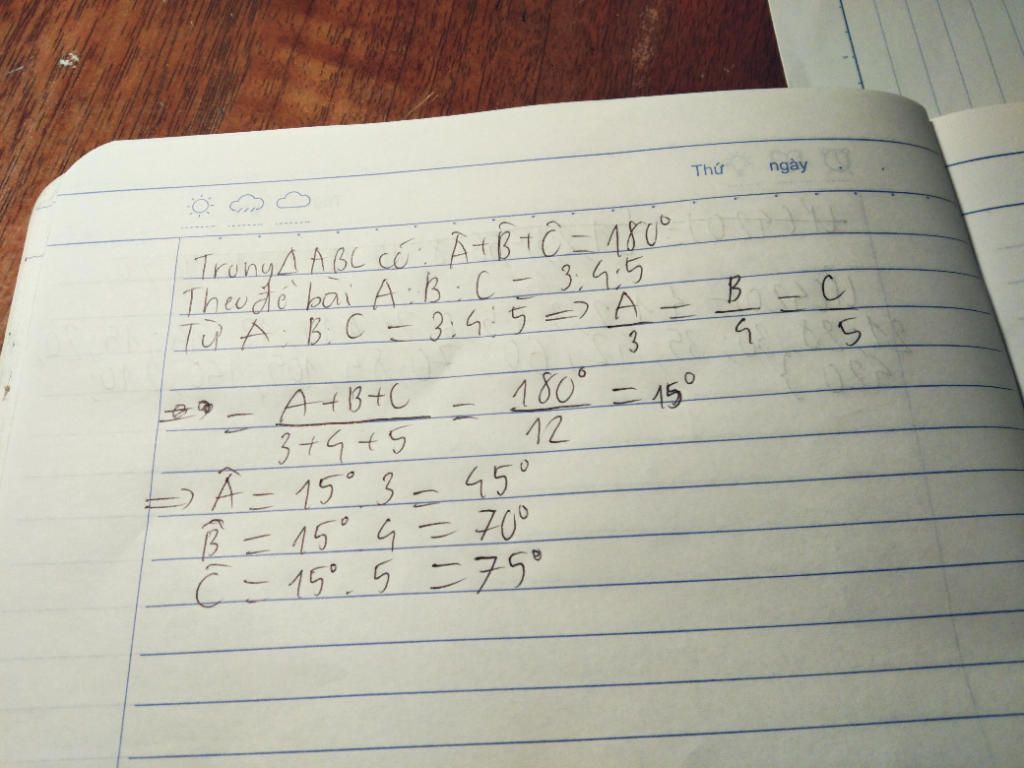 Thứ ngày
Trong Δ ABC có: Â + B̂ + Ĉ = 180°
Theo đề bài A : B : C = 3 : 4 : 5
Từ A : B : C = 3 : 4 : 5 => A/3 = B/4 = C/5
= A+B+C/3+4+5 = 180°/12 = 15°
=> Â = 15° . 3 = 45°
B̂ = 15° 4 = 70°
Ĉ = 15° . 5 = 75°